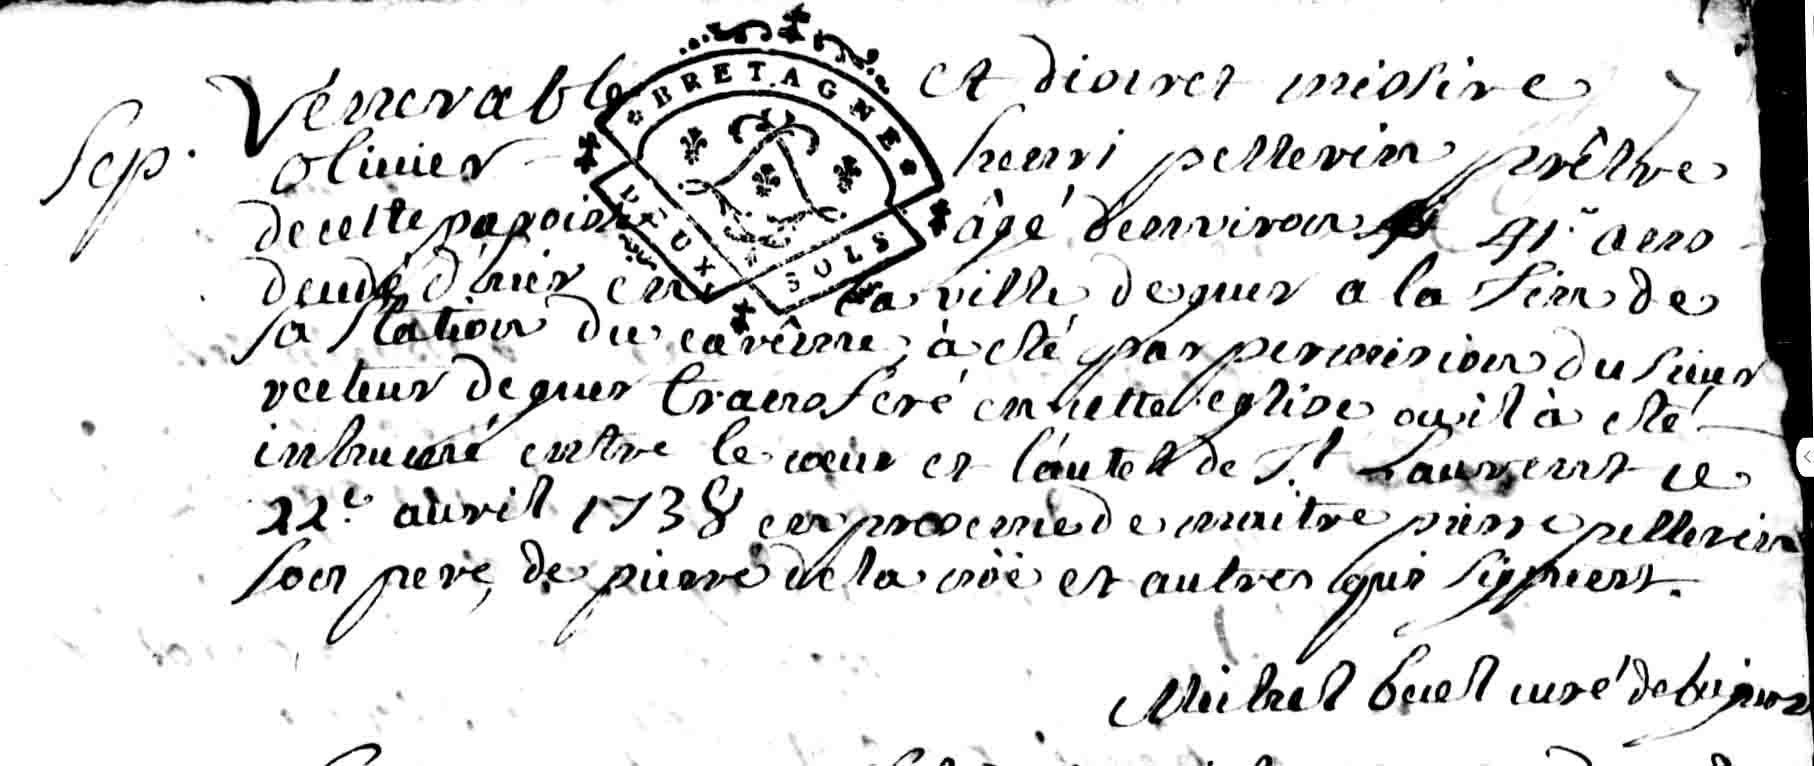 Sép. Vénerable et discret missire
BRETAGNE
DEUX SOLS
olivier henri pellerin prêtre
de cette paroisse âgé d'environ 41. ans
décédé d'hier en la ville de guer a la fin de
sa station du carême, à été par permission du sieur
recteur de guer transferé en cette eglise ou il à été
inhumé entre le cœur et l'autel de St. Laurent ce
22e. avril 1738 en presence de maitre pierre pellerin
son pere, de pierre de la noë et autres qui signent.
Michel curé de